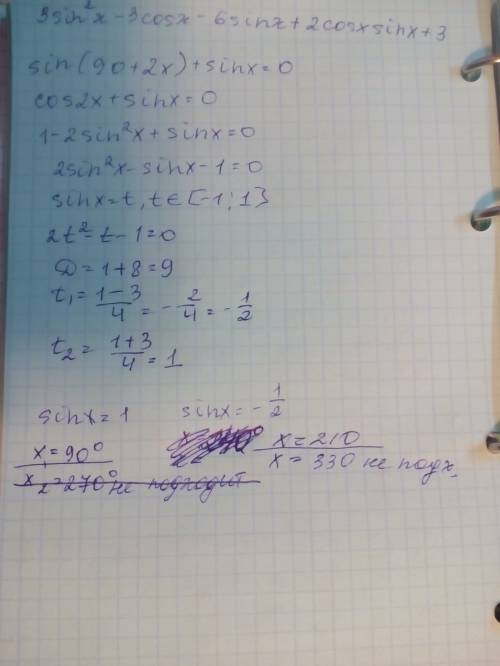 3sin²x - 3cosx - 6sinx + 2cosxsinx + 3
sin(90+2x)+sinx=0
cos2x+sinx=0
1-2sin²x+sinx=0
2sin²x-sinx-1=0
sinx=t, t∈[-1;1]
2t²-t-1=0
D=1+8=9
t₁=(1-3)/4=-2/4=-1/2
t₂=(1+3)/4=1
sinx=1 sinx=-1/2
x₁=90° x=210
x=330 не подх.
x₂=270° не подходит